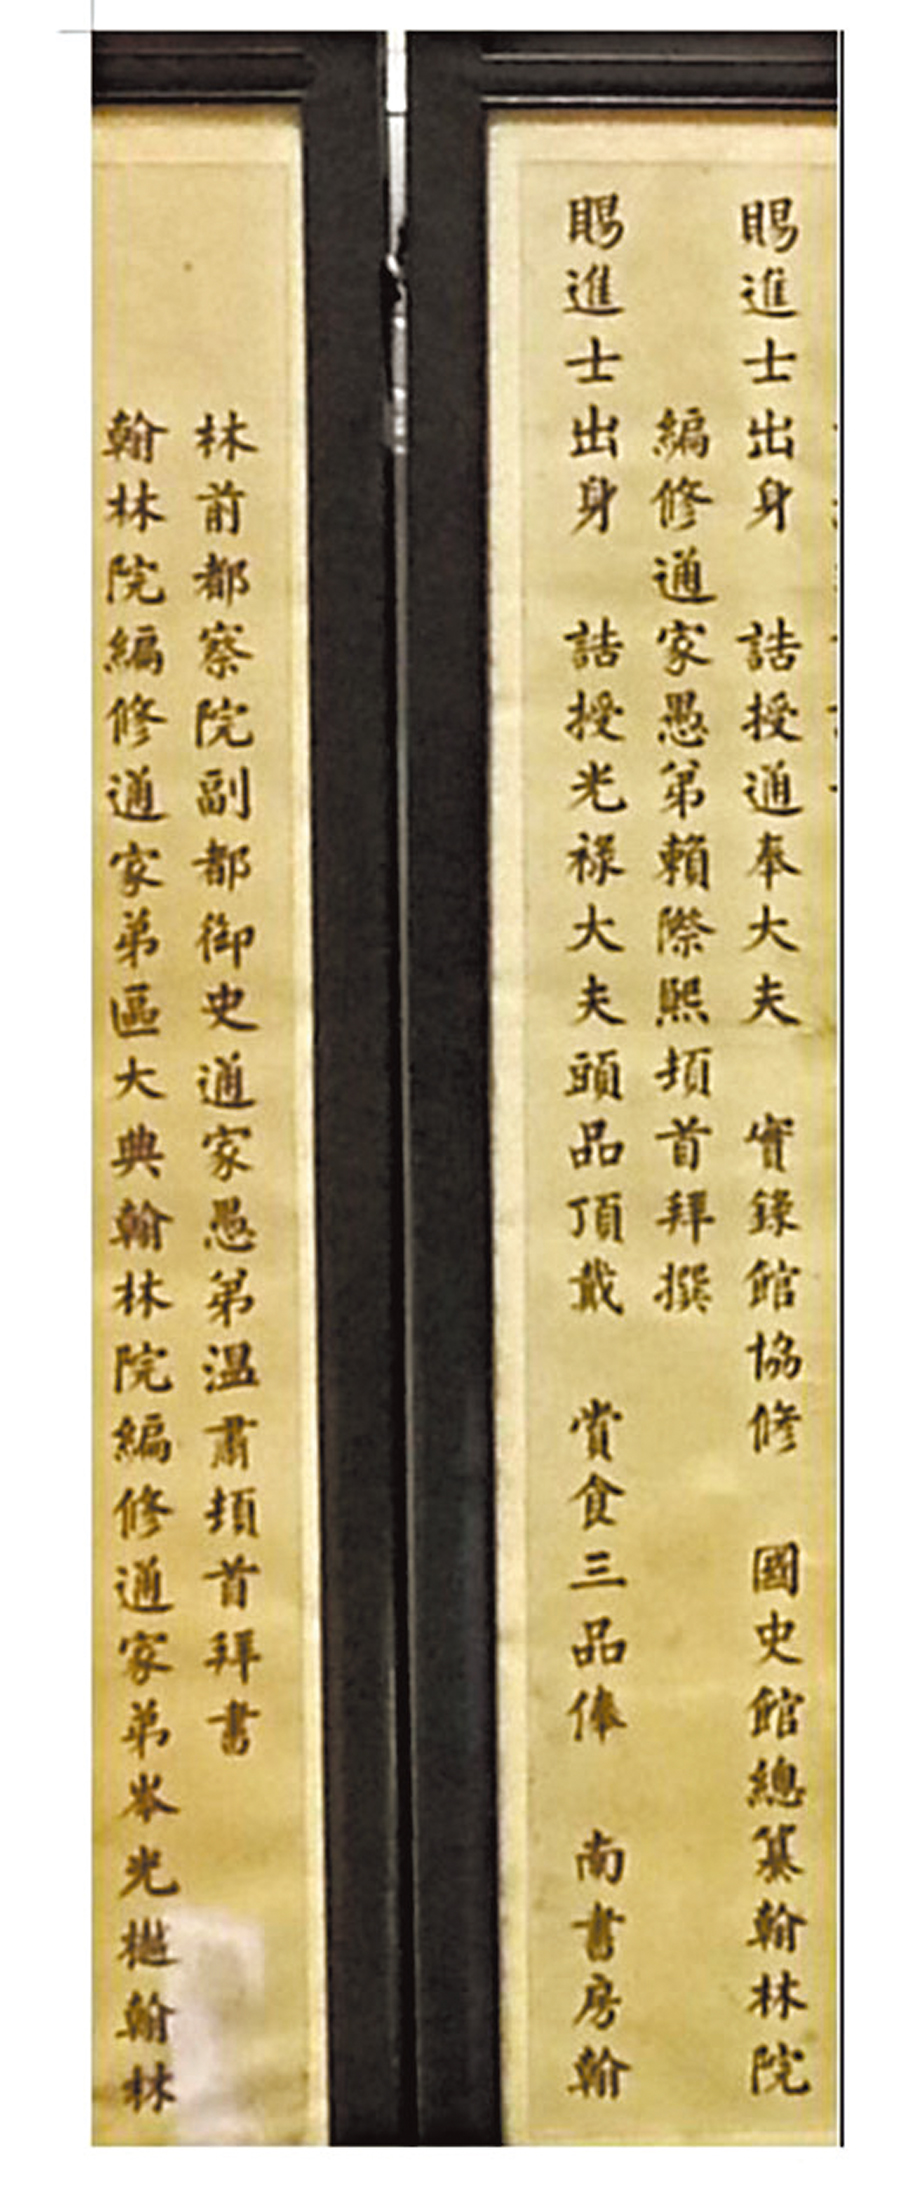 賜進士出身 誥授通奉大夫 實錄館協修 國史館總纂翰林院
編修通家愚弟賴際熙頓首拜撰
賜進士出身 誥授光祿大夫頭品頂戴 賞食三品俸 南書房翰
林前都察院副都御史通家愚弟溫肅頓首拜書
翰林院編修通家弟區大典翰林院編修通家弟岑光樾翰林